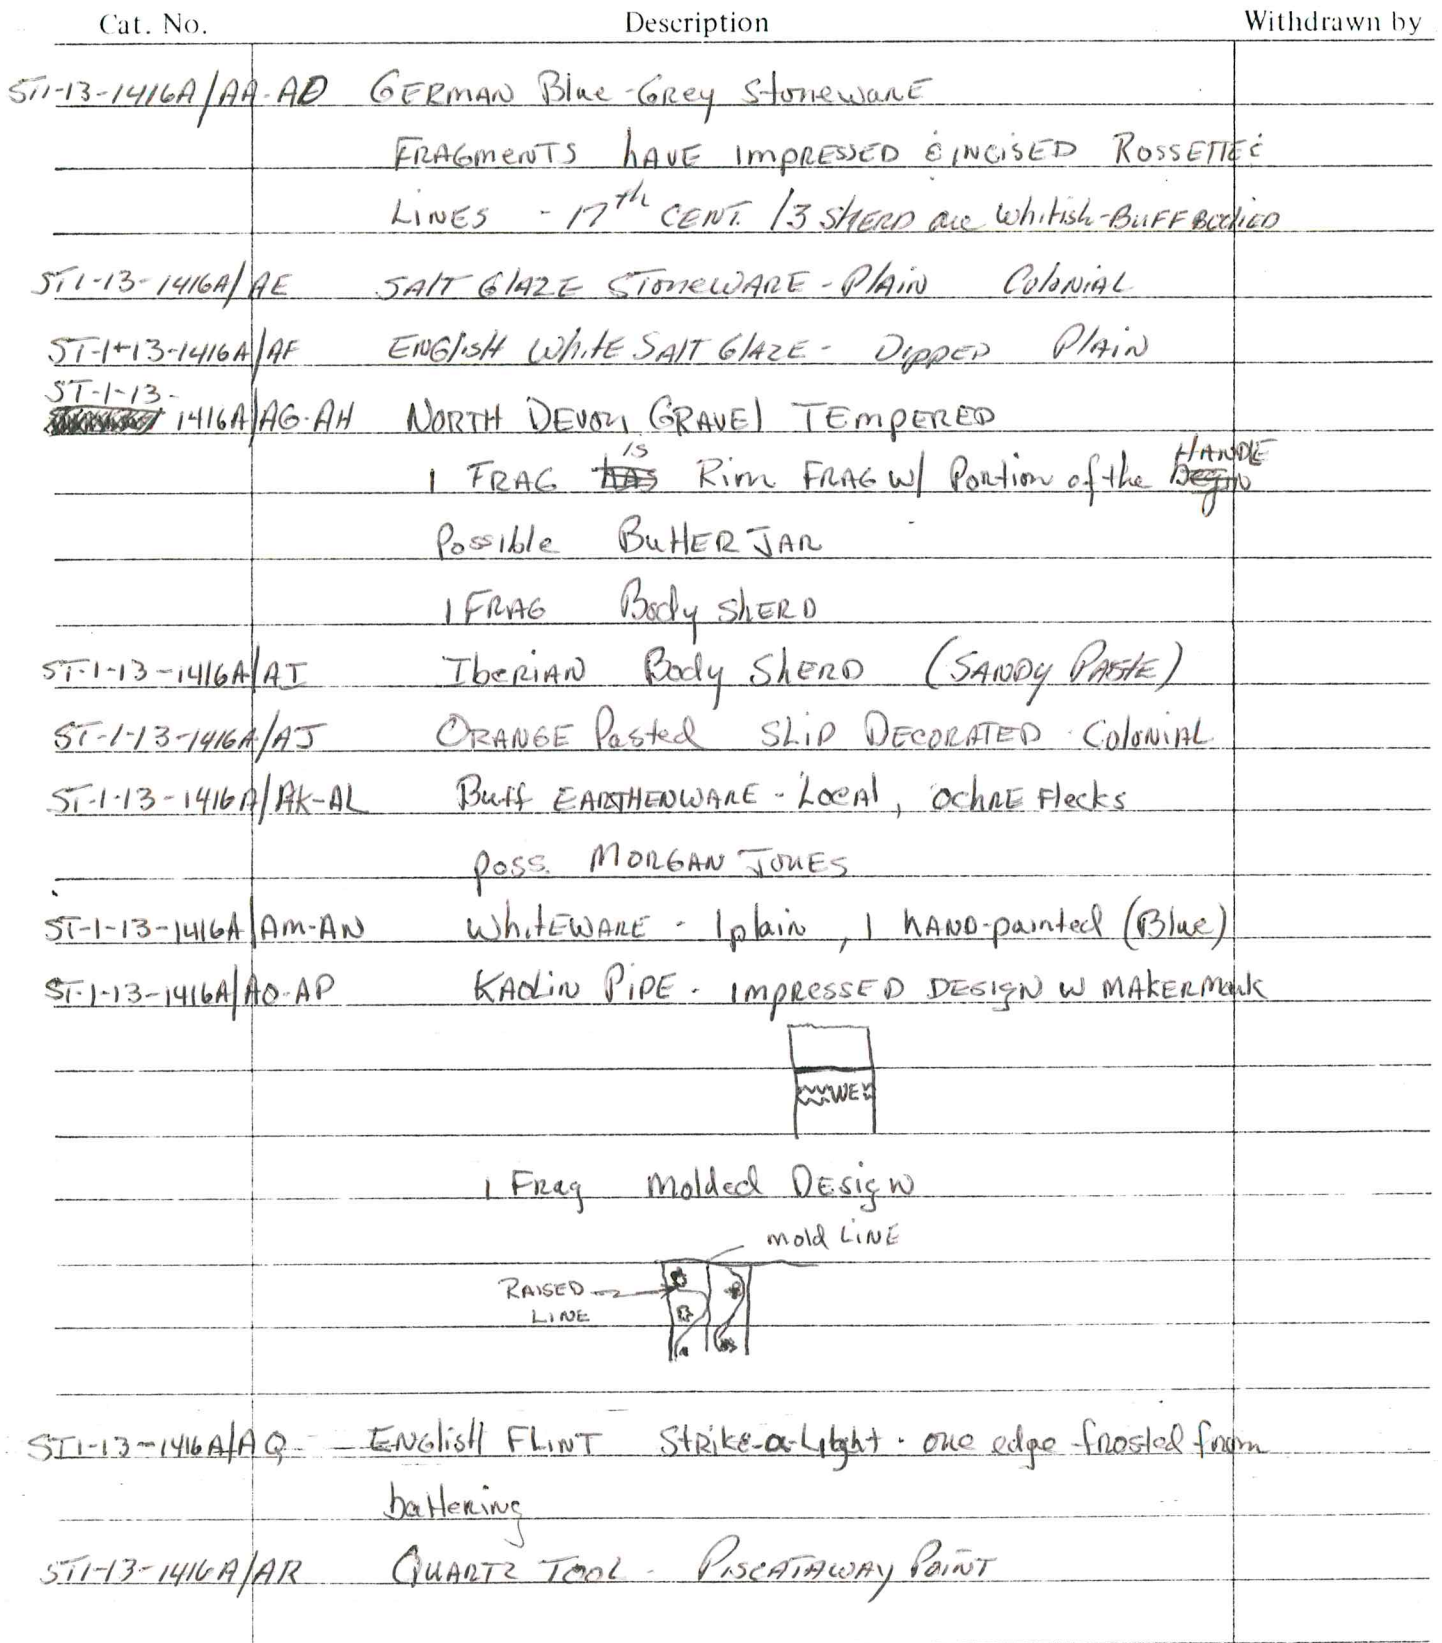 Cat. No. Description Withdrawn by
ST1-13-1416A/AA-AD GERMAN Blue-Grey Stoneware
FRAGMENTS HAVE IMPRESSED & INCISED ROSSETTE &
LINES - 17th CENT. /3 SHERD are Whitish-BUFF BODIED
ST1-13-1416A/AE SALT GLAZE STONEWARE - Plain Colonial
ST-1-13-1416A/AF ENGLISH White SALT GLAZE - Dipped Plain
ST-1-13-
1416A/AG-AH NORTH DEVON GRAVEL TEMPERED
is HANDLE
1 FRAG has Rim FRAG w/ Portion of the Begin
Possible Butter JAR
1 FRAG Body SHERD
ST-1-13-1416A/AI Iberian Body SHERD (SANDY PASTE)
ST-1-13-1416A/AJ ORANGE Pasted SLIP DECORATED - Colonial
ST-1-13-1416A/AK-AL Buff EARTHENWARE - Local, ochre Flecks
poss. MORGAN JONES
ST-1-13-1416A/AM-AN WhiteWARE - 1 plain, 1 HAND-painted (Blue)
ST-1-13-1416A/AO-AP KAOLIN PIPE - IMPRESSED DESIGN W MAKERMark
WE
1 Frag Molded Design
mold LINE
RAISED
LINE
ST1-13-1416A/AQ ENGLISH FLINT Strike-a-Light - one edge frosted from
battering
ST1-13-1416A/AR QUARTZ TOOL - PISCATAWAY POINT